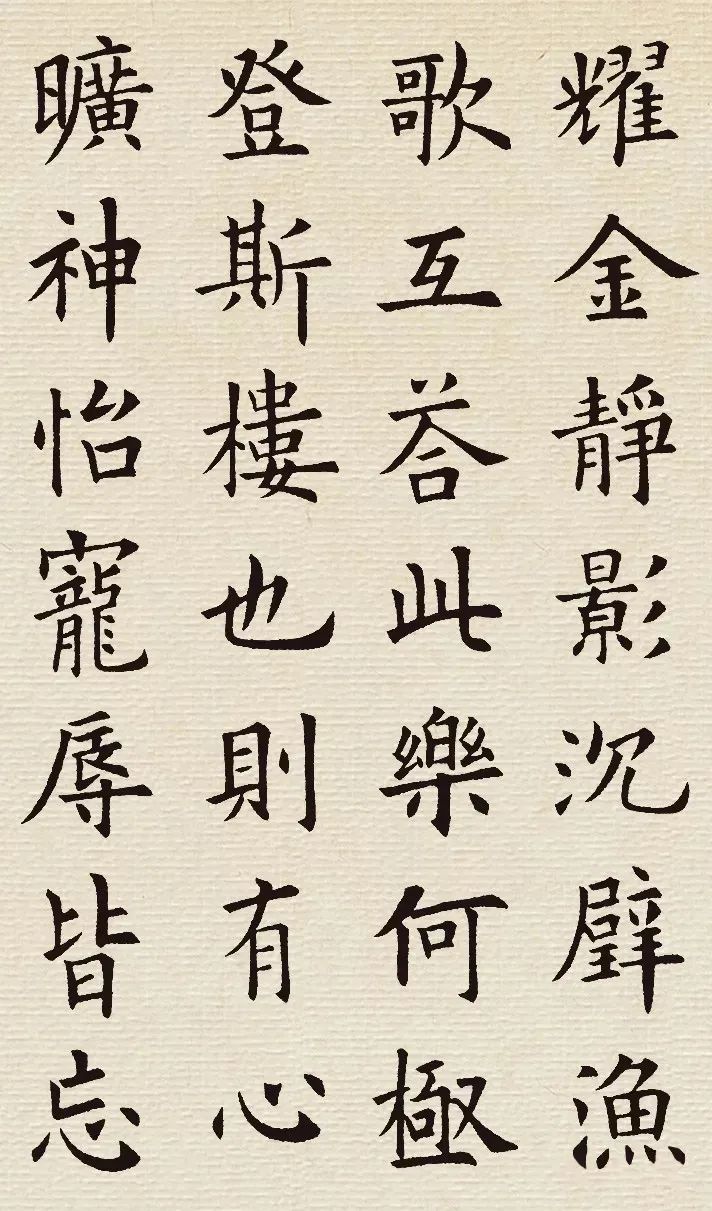 耀金靜影沉璧漁
歌互荅此樂何極
登斯樓也則有心
曠神怡寵辱皆忘